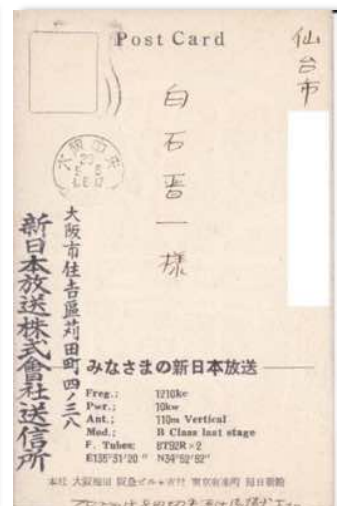 Post Card
仙台市
白石
一様
大阪中央
大阪市住吉區苅田町四ノ三八
新日本放送株式會社送信所
みなさまの新日本放送
Freg.; 1210kc
Pwr.; 10kw
Ant.; 110m Vertical
Mod.; B Class last stage
F. Tubes; 8T92R×2
E135°31′20″ N34°52′52″
本社 大阪梅田 阪急ビル
東京有楽町 毎日新館